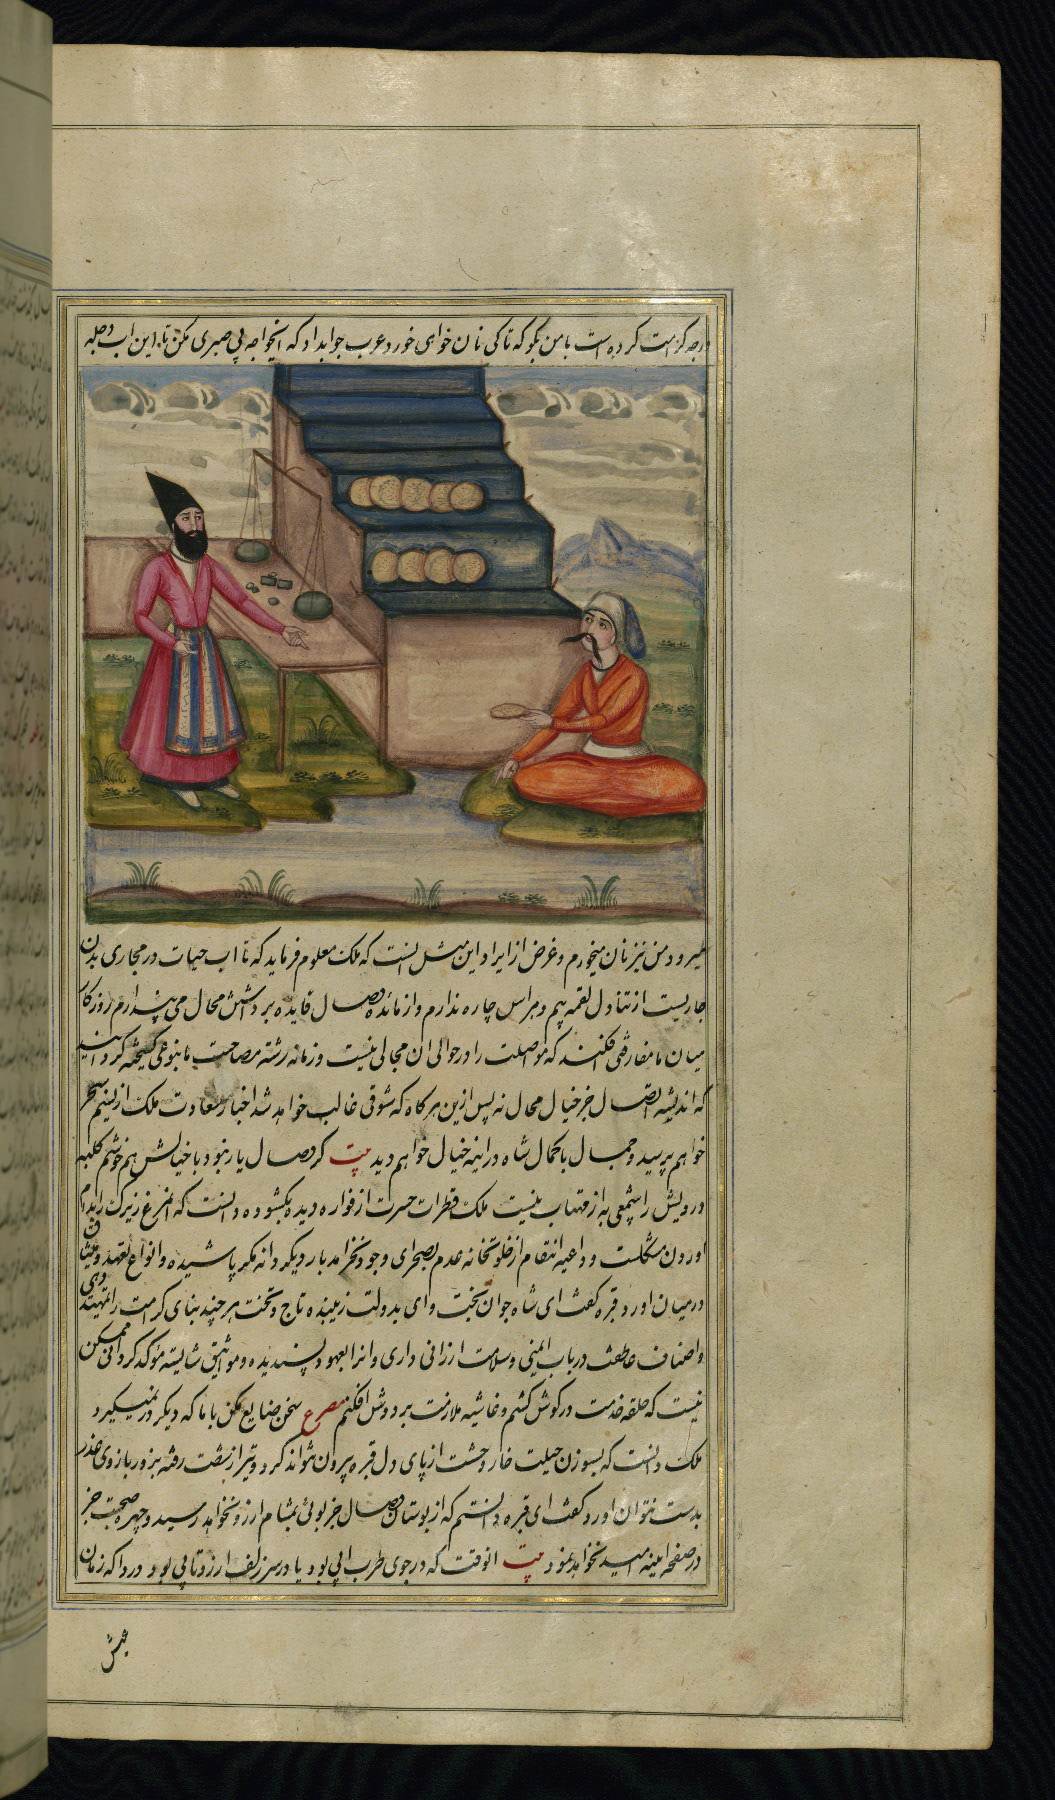 کرده است با من بگو که تا کی نان خواهی خورد عرب جواب داد که ایخواجه بی صبری مکن تا این آب دجله
میرود من نیز نان میخورم و غرض از ایراد این مثل آنست که ملک معلوم فرماید که تا آب حیات در مجاری بدن
جاریست از تناول لقمه بیم و هراس چاره ندارم و از مائده وصال فایده برداشتن محال می پندارم روزگار
میان ما مفارقتی افکند که مواصلت را در حوالی آن مجالی نیست و زمانه رشته مصاحبت ما بنوعی گسیخته گردانید
که اندیشه اتصال جز خیال محال نه پس ازین هرگاه که شوقی غالب خواهد شد اخبار سعادت ملک از نسیم سحر
خواهم پرسید و جمال باکمال شاه در آینه خیال خواهم دید بیت گر وصال یار نبود با خیالش هم خوشم کلبه
درویش را شمعی به از مهتاب نیست ملک قطرات حسرت از فواره دیده بگشود و دانست که آن مرغ زیرک را بدام
آوردن مشکلست و داعیه انتقام از خلوتخانه عدم بصحرای وجود نخرامد بار دیگر دانه مکر پاشیده و انواع تعهد و میثاق
در میان آورد قبره گفت ای شاه جوان بخت و ای بدولت زیبنده تاج و تخت هر چند بنای کرامت را تمهید دهی
و اصناف عاطفت در باب ایمنی و سلامت ارزانی داری و آنرا بعهود پسندیده و مواثیق شایسته مؤکد گردانی ممکن
نیست که حلقه خدمت در گوش کشم و غاشیه ملازمت بر دوش افکنم مصرع سخن ضایع مکن با ما که دیگر در نمیگیرد
ملک دانست که بسوزن حیلت خار وحشت از پای دل قبره بیرون نتواند کرد و تیر از شست رفته بزور بازوی
بدست نتوان آورد گفت ای قبره دانستم که از بوستان وصال جز بوئی بمشام آرزو نخواهد رسید و چهره صحبت جز
در صفحه آینه امید نخواهد نمود بیت آنوقت که در جوی طرب آبی بود یا در سر زلف آرزو تابی بود دردا که زمان
عیش